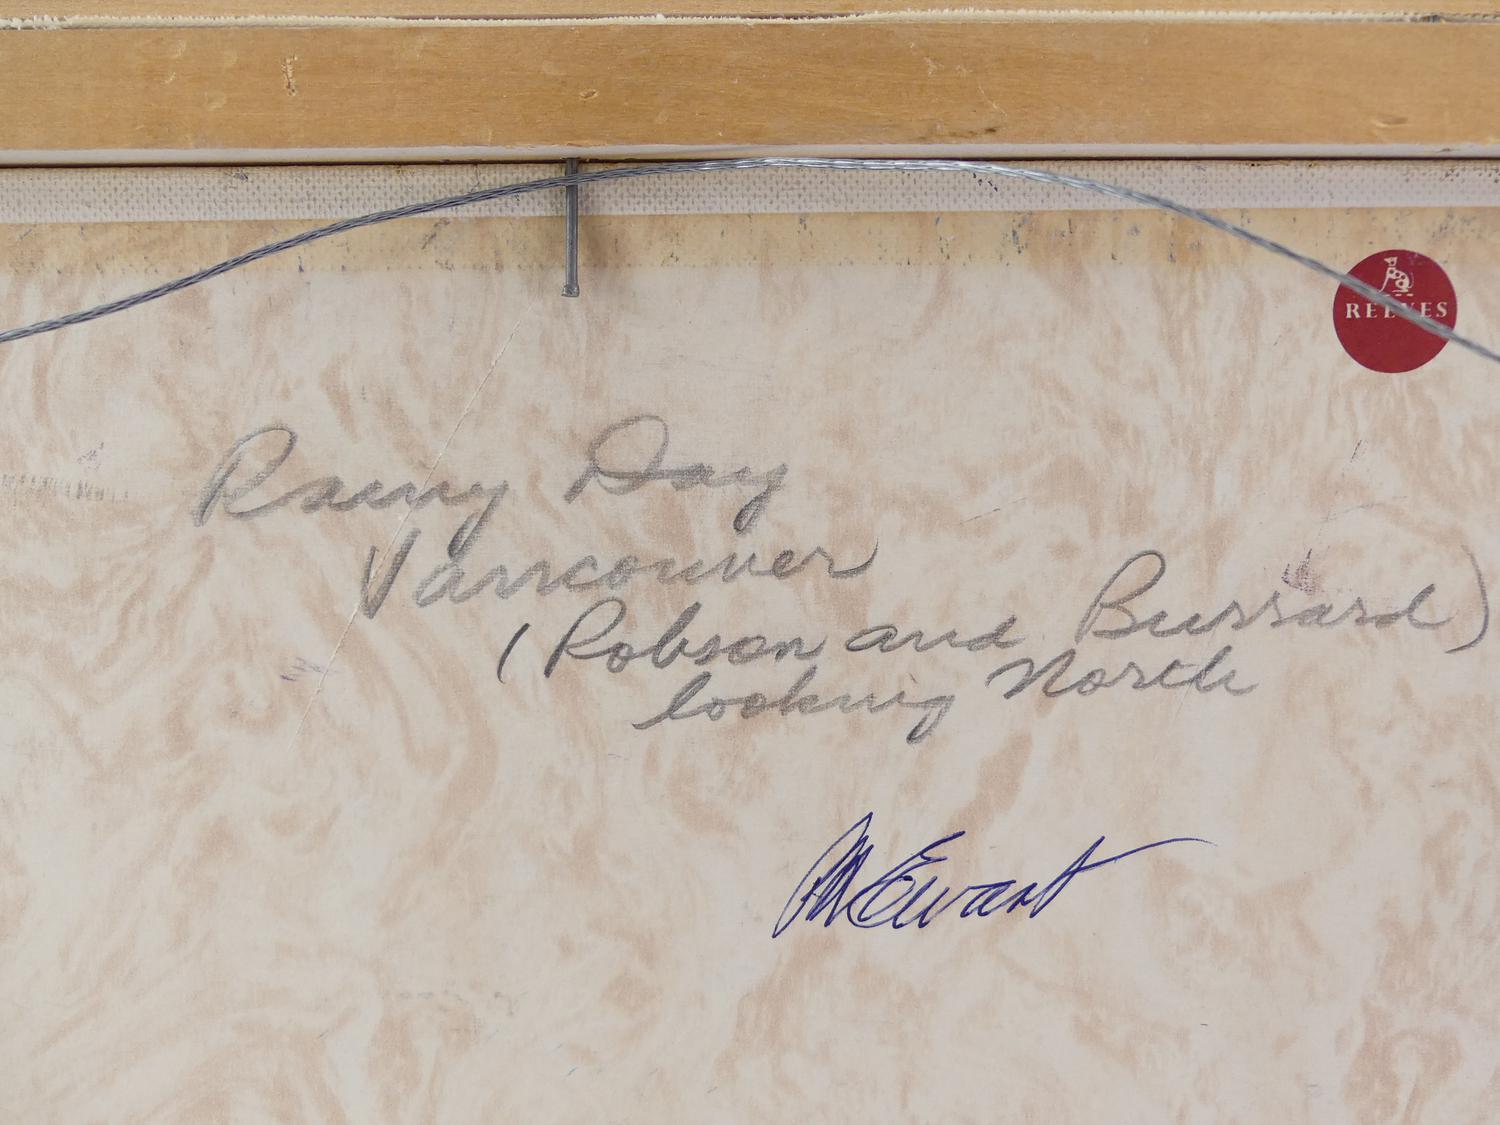 REEVES
Rainy Day
Vancouver
(Robson and Burrard)
looking North
M Ewart